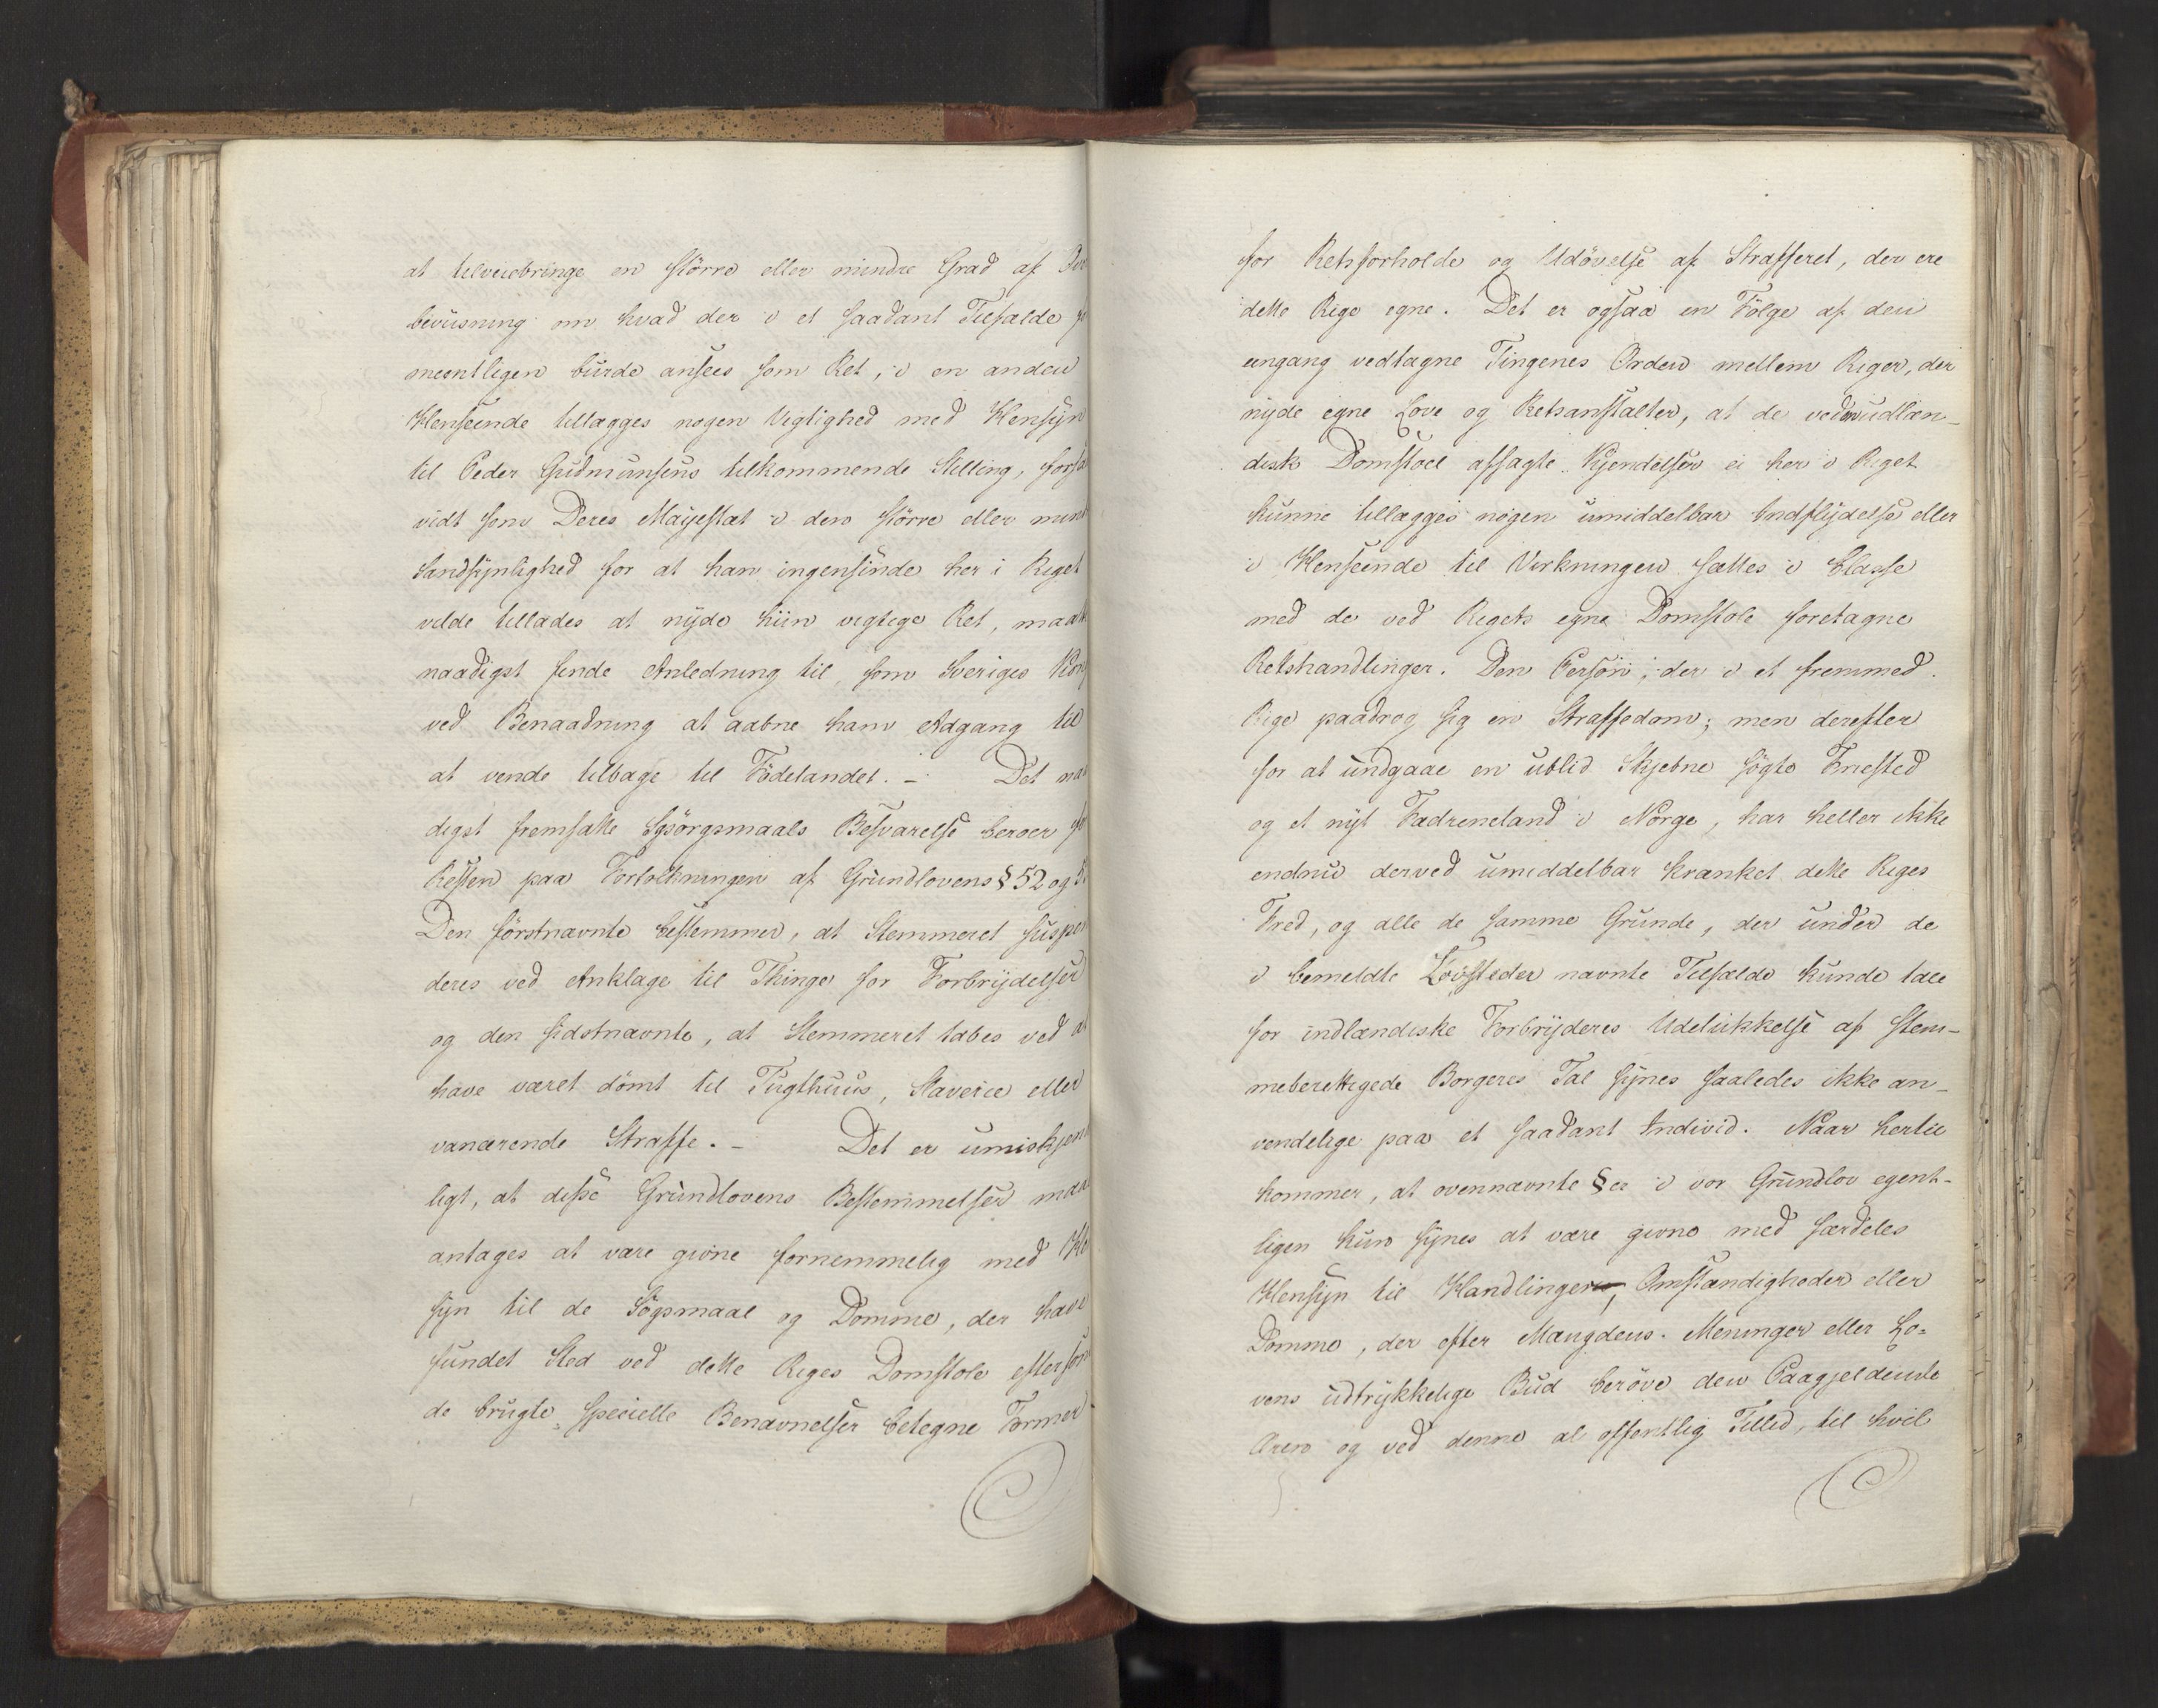 at tilveiebringe en större eller mindre Grad af
beviisning om hvad der i et saadant Tilfælde
meentligen burde ansees som Ret, i en anden
Henseende tillægges nogen Vigtighed med Hensyn
til Peder Gudmunsens tilkommende Stilling, forsaa
vidt som Deres Mayestæt i den större eller mind
Sandsynlighed for at han ingensinde her i Riget
vilde tillades at nyde hiin vigtige Ret, maatte
naadigst finde Anledning til, som Sveriges Kong
ved Benaadning at aabne ham Adgang til
at vende tilbage til Födelandet. – Det naa
digst fremsatte Spörgsmaals Besvarelse beroer
Resten paa Fortolkningen af Grundlovens § 52 og
Den förstnævnte bestemmer, at Stemmeret suspen
deres ved Anklage til Thinge for Forbrydelser
og den sidstnævnte, at Stemmeret tabes ved at
have været dömt til Tugthuus, Slaverie eller
vanærende Straffe. – Det er umiskjen
ligt, at disse Grundlovens Bestemmelser maa
antages at være givne fornemmelig med Hen
syn til de Sögsmaal og Domme, der have
fundet Sted ved dette Riges Domstole eftersom
de brugte specielle Benævnelser betegne Former
for Retsforholde og Udövelse af Strafferet, der ere
dette Rige egne. Det er ogsaa en Fölge af den
eengang vedtagne Tingenes Orden mellem Riger, der
nyde egne Love og Retsanstalter, at de ved en udlæn-
disk Domstoel afsagte Kjendelser ei her i Riget
kunne tillægges nogen umiddelbar Indflydelse eller
i Henseende til Virkningen sættes i Classe
med de ved Rigets egne Domstole foretagne
Retshandlinger. Den Person, der i et fremmed
Rige paadrog sig en Straffedom; men derefter
for at undgaae en ublid Skjebne sögte Friested
og et nyt Fædreneland i Norge, har heller ikke
endnu derved umiddelbar krænket dette Riges
Fred, og alle de samme Grunde, der under de
i bemeldte Lovsteder nævnte Tilfælde kunde tale
for indlændiske Forbryderes Udelukkelse af stem-
meberettigede Borgeres Tal synes saaledes ikke an-
vendelige paa et saadant Individ. Naar hertil
kommer, at ovennævnte §er i vor Grundlov egent-
ligen kun synes at være givne med særdeles
Hensyn til Handlinger, Omstændigheder eller
Domme, der efter Mængdens Meninger eller Lo-
vens udtrykkelige Bud beröve den Paagjeldende
Æren og ved denne al offentlig Tillid, til hvil